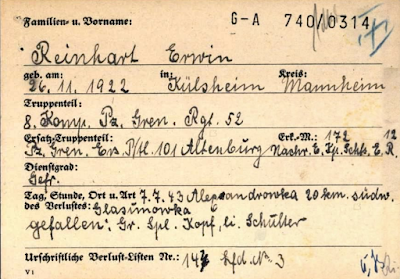 Familien- u. Vorname: G-A 740/0314
Reinhart Erwin
geb. am: in: Kreis:
26.11.1922 Külsheim Mannheim
Truppenteil:
8. Komp. Pz. Gren. Rgt. 52
Ersatz-Truppenteil: Erk.-M.: 172 12
Pz. Gren. Ers. Btl. 101 Altenburg Nachr. E. Kp. Schtz. E. R.
Dienstgrad:
Gefr.
Tag, Stunde, Ort u. Art 7.7.43 Alexandrowka 20 km. südw.
des Verlustes: Glasunowka
gefallen: Gr. Spl. Kopf, li. Schulter
Urschriftliche Verlust-Listen Nr.: lfd. Nr. 3
VI